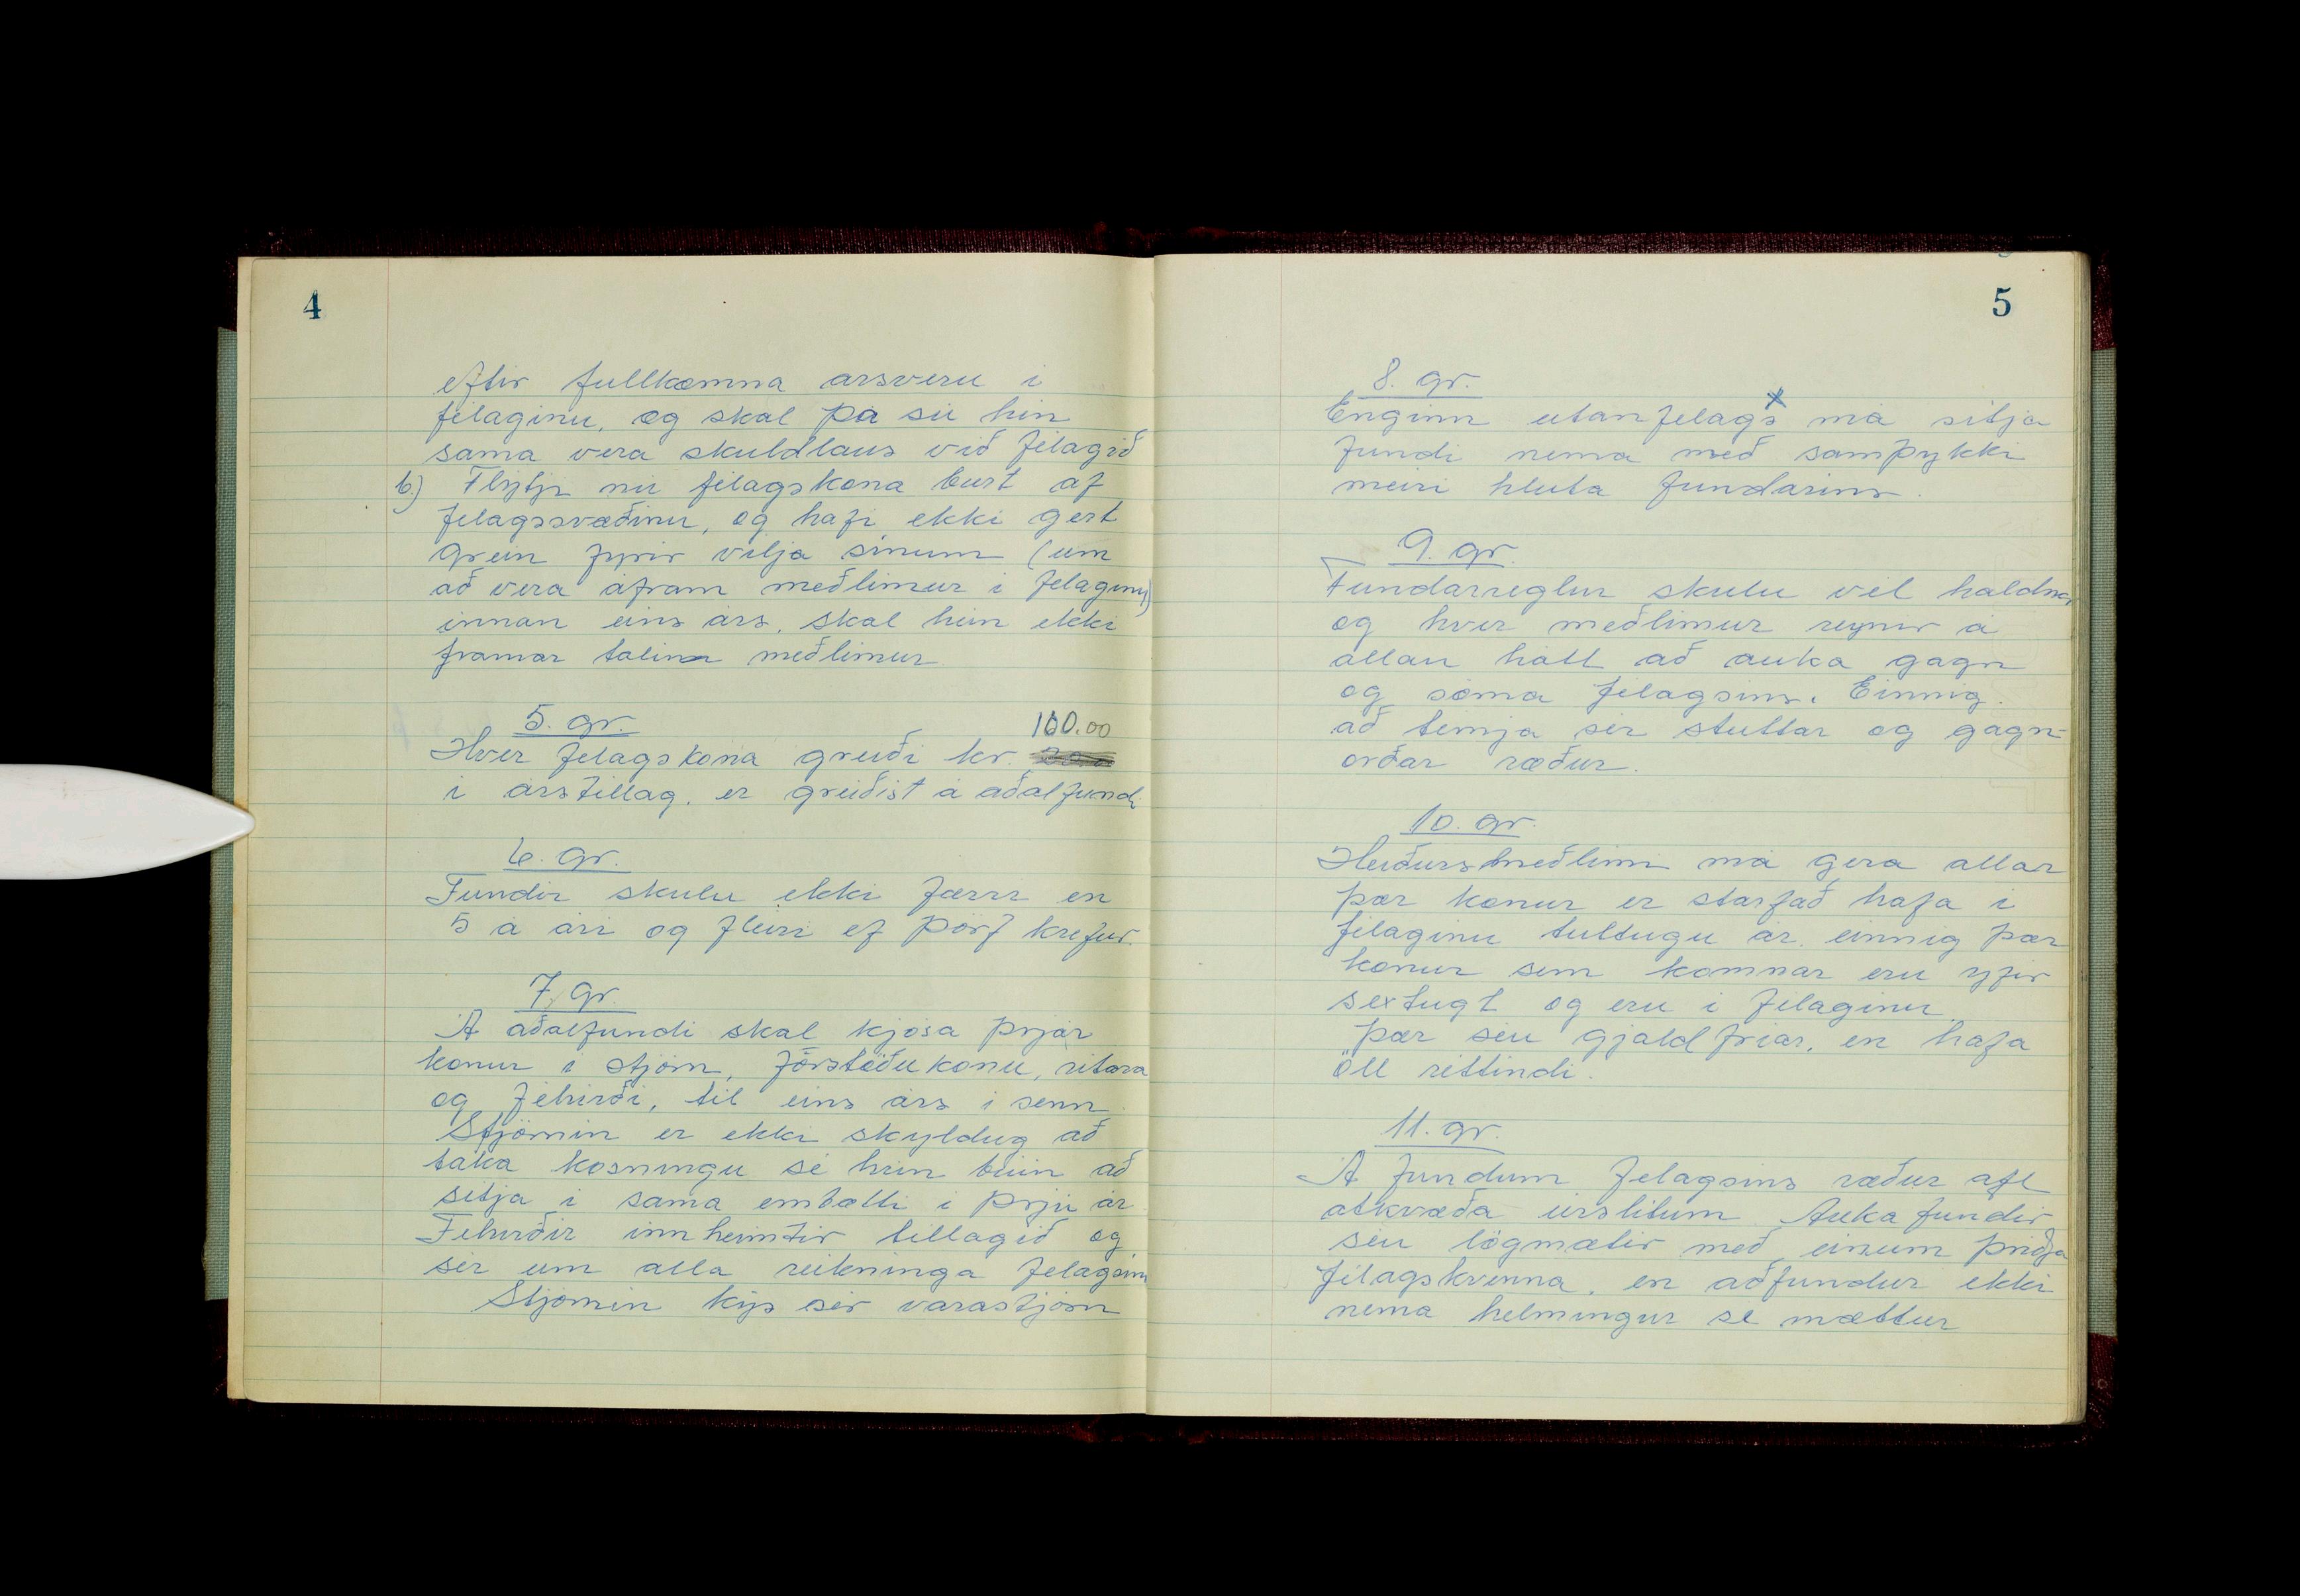 4
eftir fullkomna ársveru í
félaginu, og skal þá sú hin
sama vera skuldlaus við félagið
b.) Flytji nú félagskona burt af
félagssvæðinu, og hafi ekki gert
grein fyrir vilja sínum (um
að vera áfram meðlimur í félaginu)
innan eins árs, skal hún ekki
framar talin meðlimur
5. gr.
100.00
Hver félagskona greiði kr.
í árstillag, er greiðist á aðalfundi
6. gr.
Fundir skulu ekki færri en
5 á ári og fleiri ef þörf krefur.
7. gr.
Á aðalfundi skal kjósa þrjár
konur í stjórn, förstöðukonu, ritara
og féhirði, til eins árs í senn.
Stjórnin er ekki skyldug að
taka kosningu sé hún búin að
sitja í sama embætti í þrjú ár
Féhirðir innheimtir tillagið og
sér um alla reikninga félagsins
Stjórnin kýs sér varastjórn
5
8. gr.
Enginn utanfélags má sitja
fundi nema með samþykki
meiri hluta fundarins.
9. gr.
Fundarreglur skulu vel haldnar
og hver meðlimur reynir á
allan hátt að auka gagn
og sóma félagsins. Einnig
að temja sér stuttar og gagn-
orðar ræður.
10. gr.
Heiðursmeðlimi má gera allar
þær konur er starfað hafa í
félaginu tuttugu ár, einnig þær
konur sem komnar eru yfir
sextugt og eru í félaginu.
Þær séu gjaldfríar, en hafa
öll réttindi.
11. gr.
Á fundum félagsins ræður afl
atkvæða úrslitum. Aukafundir
séu lögmætir með einum þriðja
félagskvenna, en aðfundur ekki
nema helmingur sé mættur